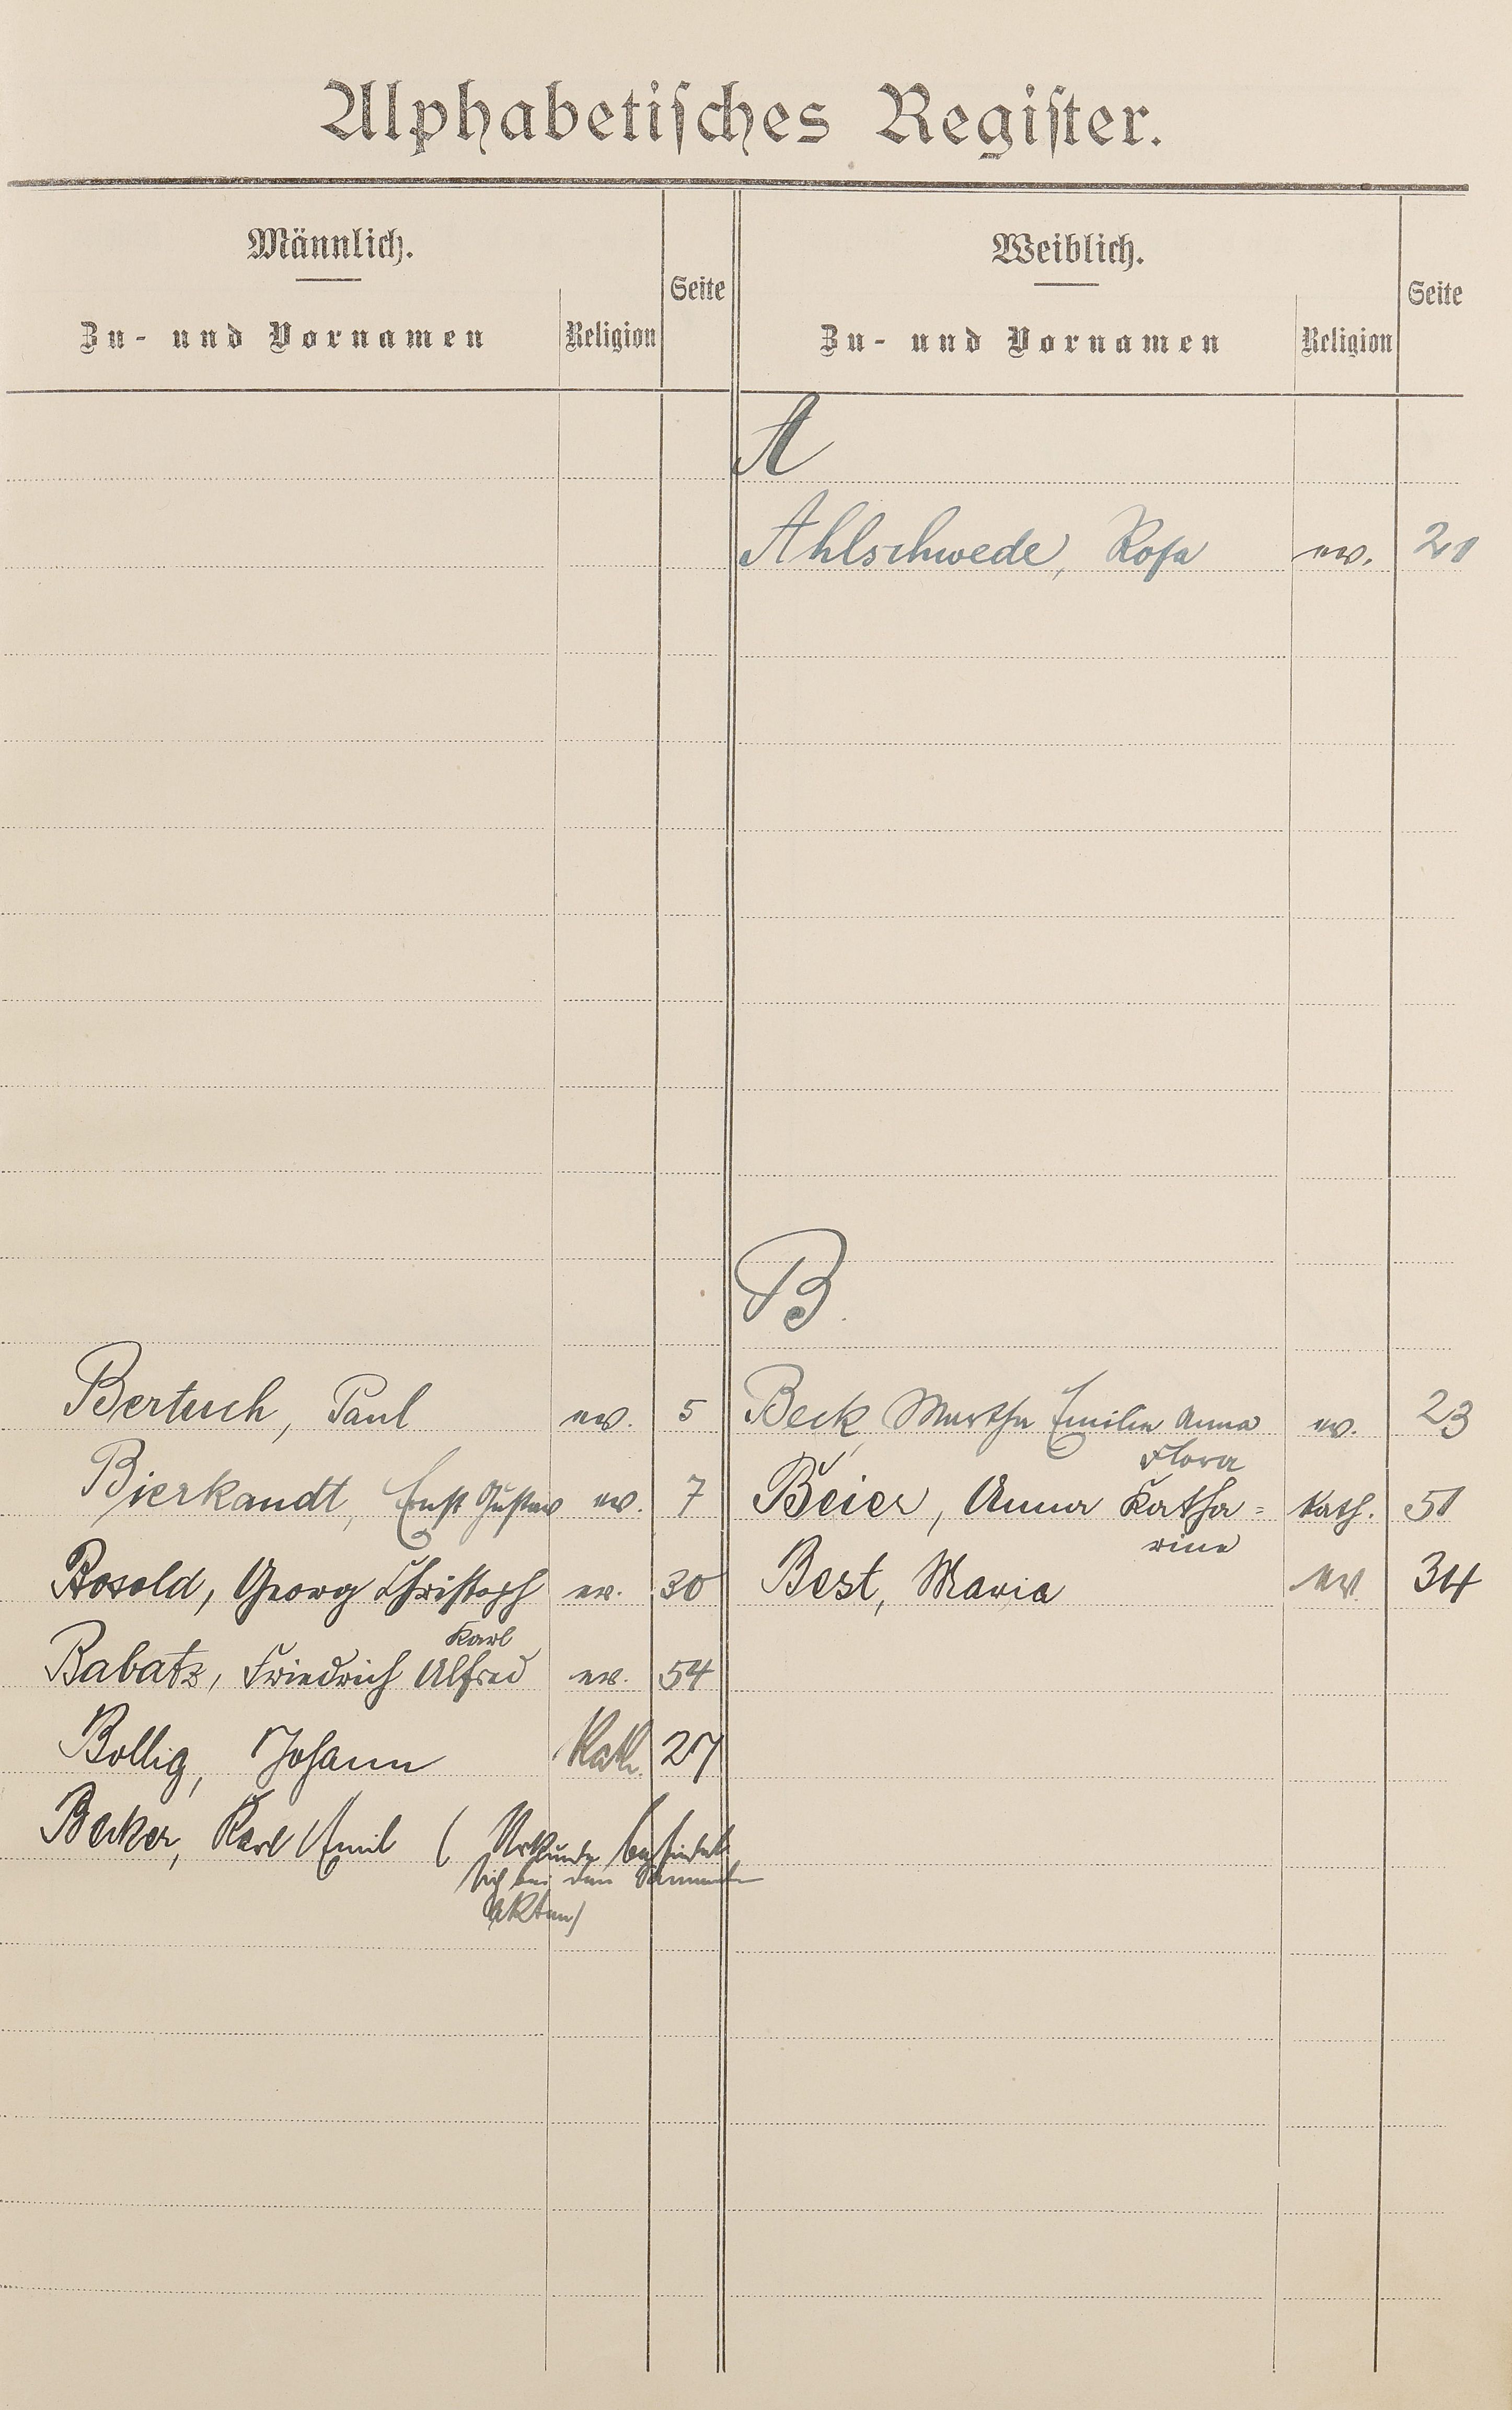 Alphabetisches Register.
Männlich. Seite Weiblich. Seite
Zu- und Vornamen Religion Zu- und Vornamen Religion
A
Ahlschwede, Rosa ev. 21
B
Bertuch, Paul ev. 5 Beck, Martha Emilie Anna ev. 23
Flora
Bierkandt, Ernst Gustav ev. 7 Beier, Anna Katha= kath. 51
rine
Bosold, Georg Christoph ev. 30 Best, Maria ev. 34
Karl
Babatz, Friedrich Alfred ev. 54
Bollig, Johann Kath. 27
Becker, Karl Emil ( Urkunde befindet
sich bei den Sammel
akten)